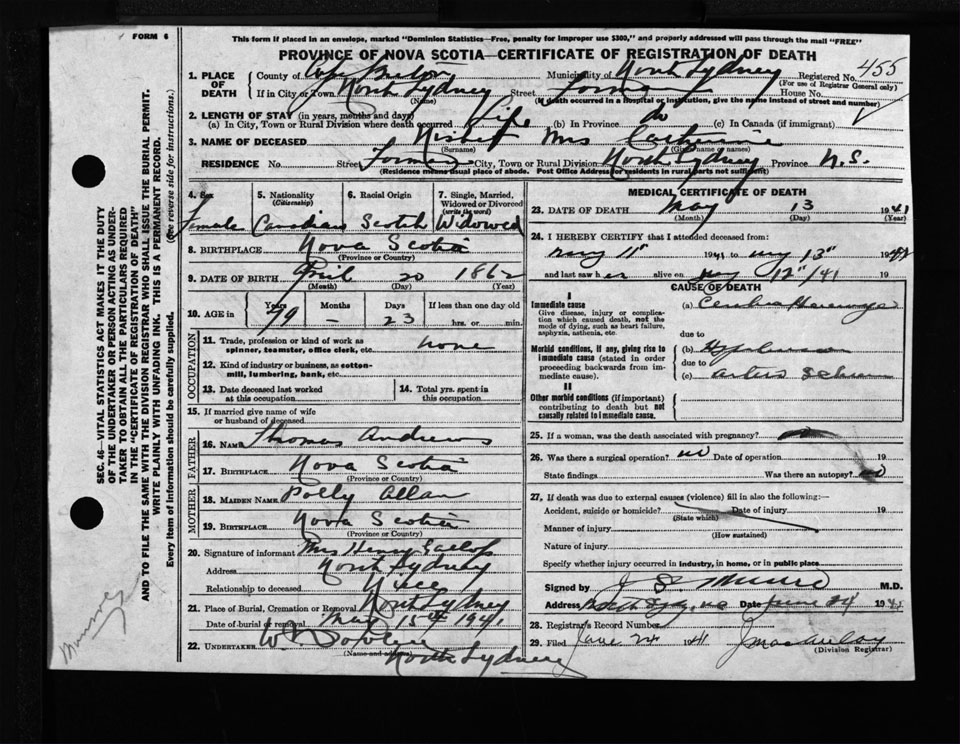 FORM 6
This form if placed in an envelope, marked "Dominion Statistics—Free, penalty for improper use $300," and properly addressed will pass through the mail "FREE"
PROVINCE OF NOVA SCOTIA—CERTIFICATE OF REGISTRATION OF DEATH
1. PLACE OF DEATH County of Cape Breton Municipality of North Sydney Registered No. 455
(For use of Registrar General only)
If in City or Town North Sydney Street House No.
(Name) (If death occurred in a Hospital or institution, give the name instead of street and number)
2. LENGTH OF STAY (in years, months and days)
(a) In City, Town or Rural Division where death occurred Life (b) In Province do (c) In Canada (if immigrant)
3. NAME OF DECEASED Mrs Catherine
(Surname) (Given name or names)
RESIDENCE No. Street City, Town or Rural Division North Sydney Province N.S.
(Residence means usual place of abode. Post Office Address for residents in rural parts not sufficient)
4. Sex Female
5. Nationality (Citizenship) Canadian
6. Racial Origin Scotch
7. Single, Married, Widowed or Divorced (write the word) Widowed
8. BIRTHPLACE Nova Scotia
(Province or Country)
9. DATE OF BIRTH April 20 1862
(Month) (Day) (Year)
10. AGE in Years 79 Months — Days 23 If less than one day old hrs. or min.
OCCUPATION
11. Trade, profession or kind of work as spinner, teamster, office clerk, etc. none
12. Kind of industry or business, as cotton-mill, lumbering, bank, etc.
13. Date deceased last worked at this occupation
14. Total yrs. spent in this occupation
15. If married give name of wife or husband of deceased
FATHER
16. NAME Thomas Andrews
17. BIRTHPLACE Nova Scotia
(Province or Country)
MOTHER
18. MAIDEN NAME Polly Allan
19. BIRTHPLACE Nova Scotia
(Province or Country)
20. Signature of informant Mrs Henry
Address North Sydney
Relationship to deceased Niece
21. Place of Burial, Cremation or Removal North Sydney
Date of burial or removal May 15th 1941
22. UNDERTAKER
(Name and address) North Sydney
MEDICAL CERTIFICATE OF DEATH
23. DATE OF DEATH May 13 1941
(Month) (Day) (Year)
24. I HEREBY CERTIFY that I attended deceased from:
May 11" 1941 to May 13" 19
and last saw her alive on May 12"/41 19
CAUSE OF DEATH
I
Immediate cause (a) Cerebral Hemorrhage
Give disease, injury or complication which caused death, not the mode of dying, such as heart failure, asphyxia, asthenia, etc.
due to
Morbid conditions, if any, giving rise to immediate cause (stated in order proceeding backwards from immediate cause). (b)
due to
(c)
II
Other morbid conditions (if important) contributing to death but not causally related to immediate cause.
25. If a woman, was the death associated with pregnancy?
26. Was there a surgical operation? no Date of operation 19
State findings Was there an autopsy? no
27. If death was due to external causes (violence) fill in also the following:—
Accident, suicide or homicide? Date of injury 19
(State which)
Manner of injury
(How sustained)
Nature of injury
Specify whether injury occurred in industry, in home, or in public place
Signed by M.D.
Address Date June 24 1941
28. Registrar's Record Number
29. Filed June 24 1941
(Division Registrar)
SEC. 46—VITAL STATISTICS ACT MAKES IT THE DUTY
OF THE UNDERTAKER OR PERSON ACTING AS UNDER-
TAKER TO OBTAIN ALL THE PARTICULARS REQUIRED
IN THE "CERTIFICATE OF REGISTRATION OF DEATH"
AND TO FILE THE SAME WITH THE DIVISION REGISTRAR WHO SHALL ISSUE THE BURIAL PERMIT.
WRITE PLAINLY WITH UNFADING INK. THIS IS A PERMANENT RECORD.
Every item of information should be carefully supplied. (See reverse side for instructions.)